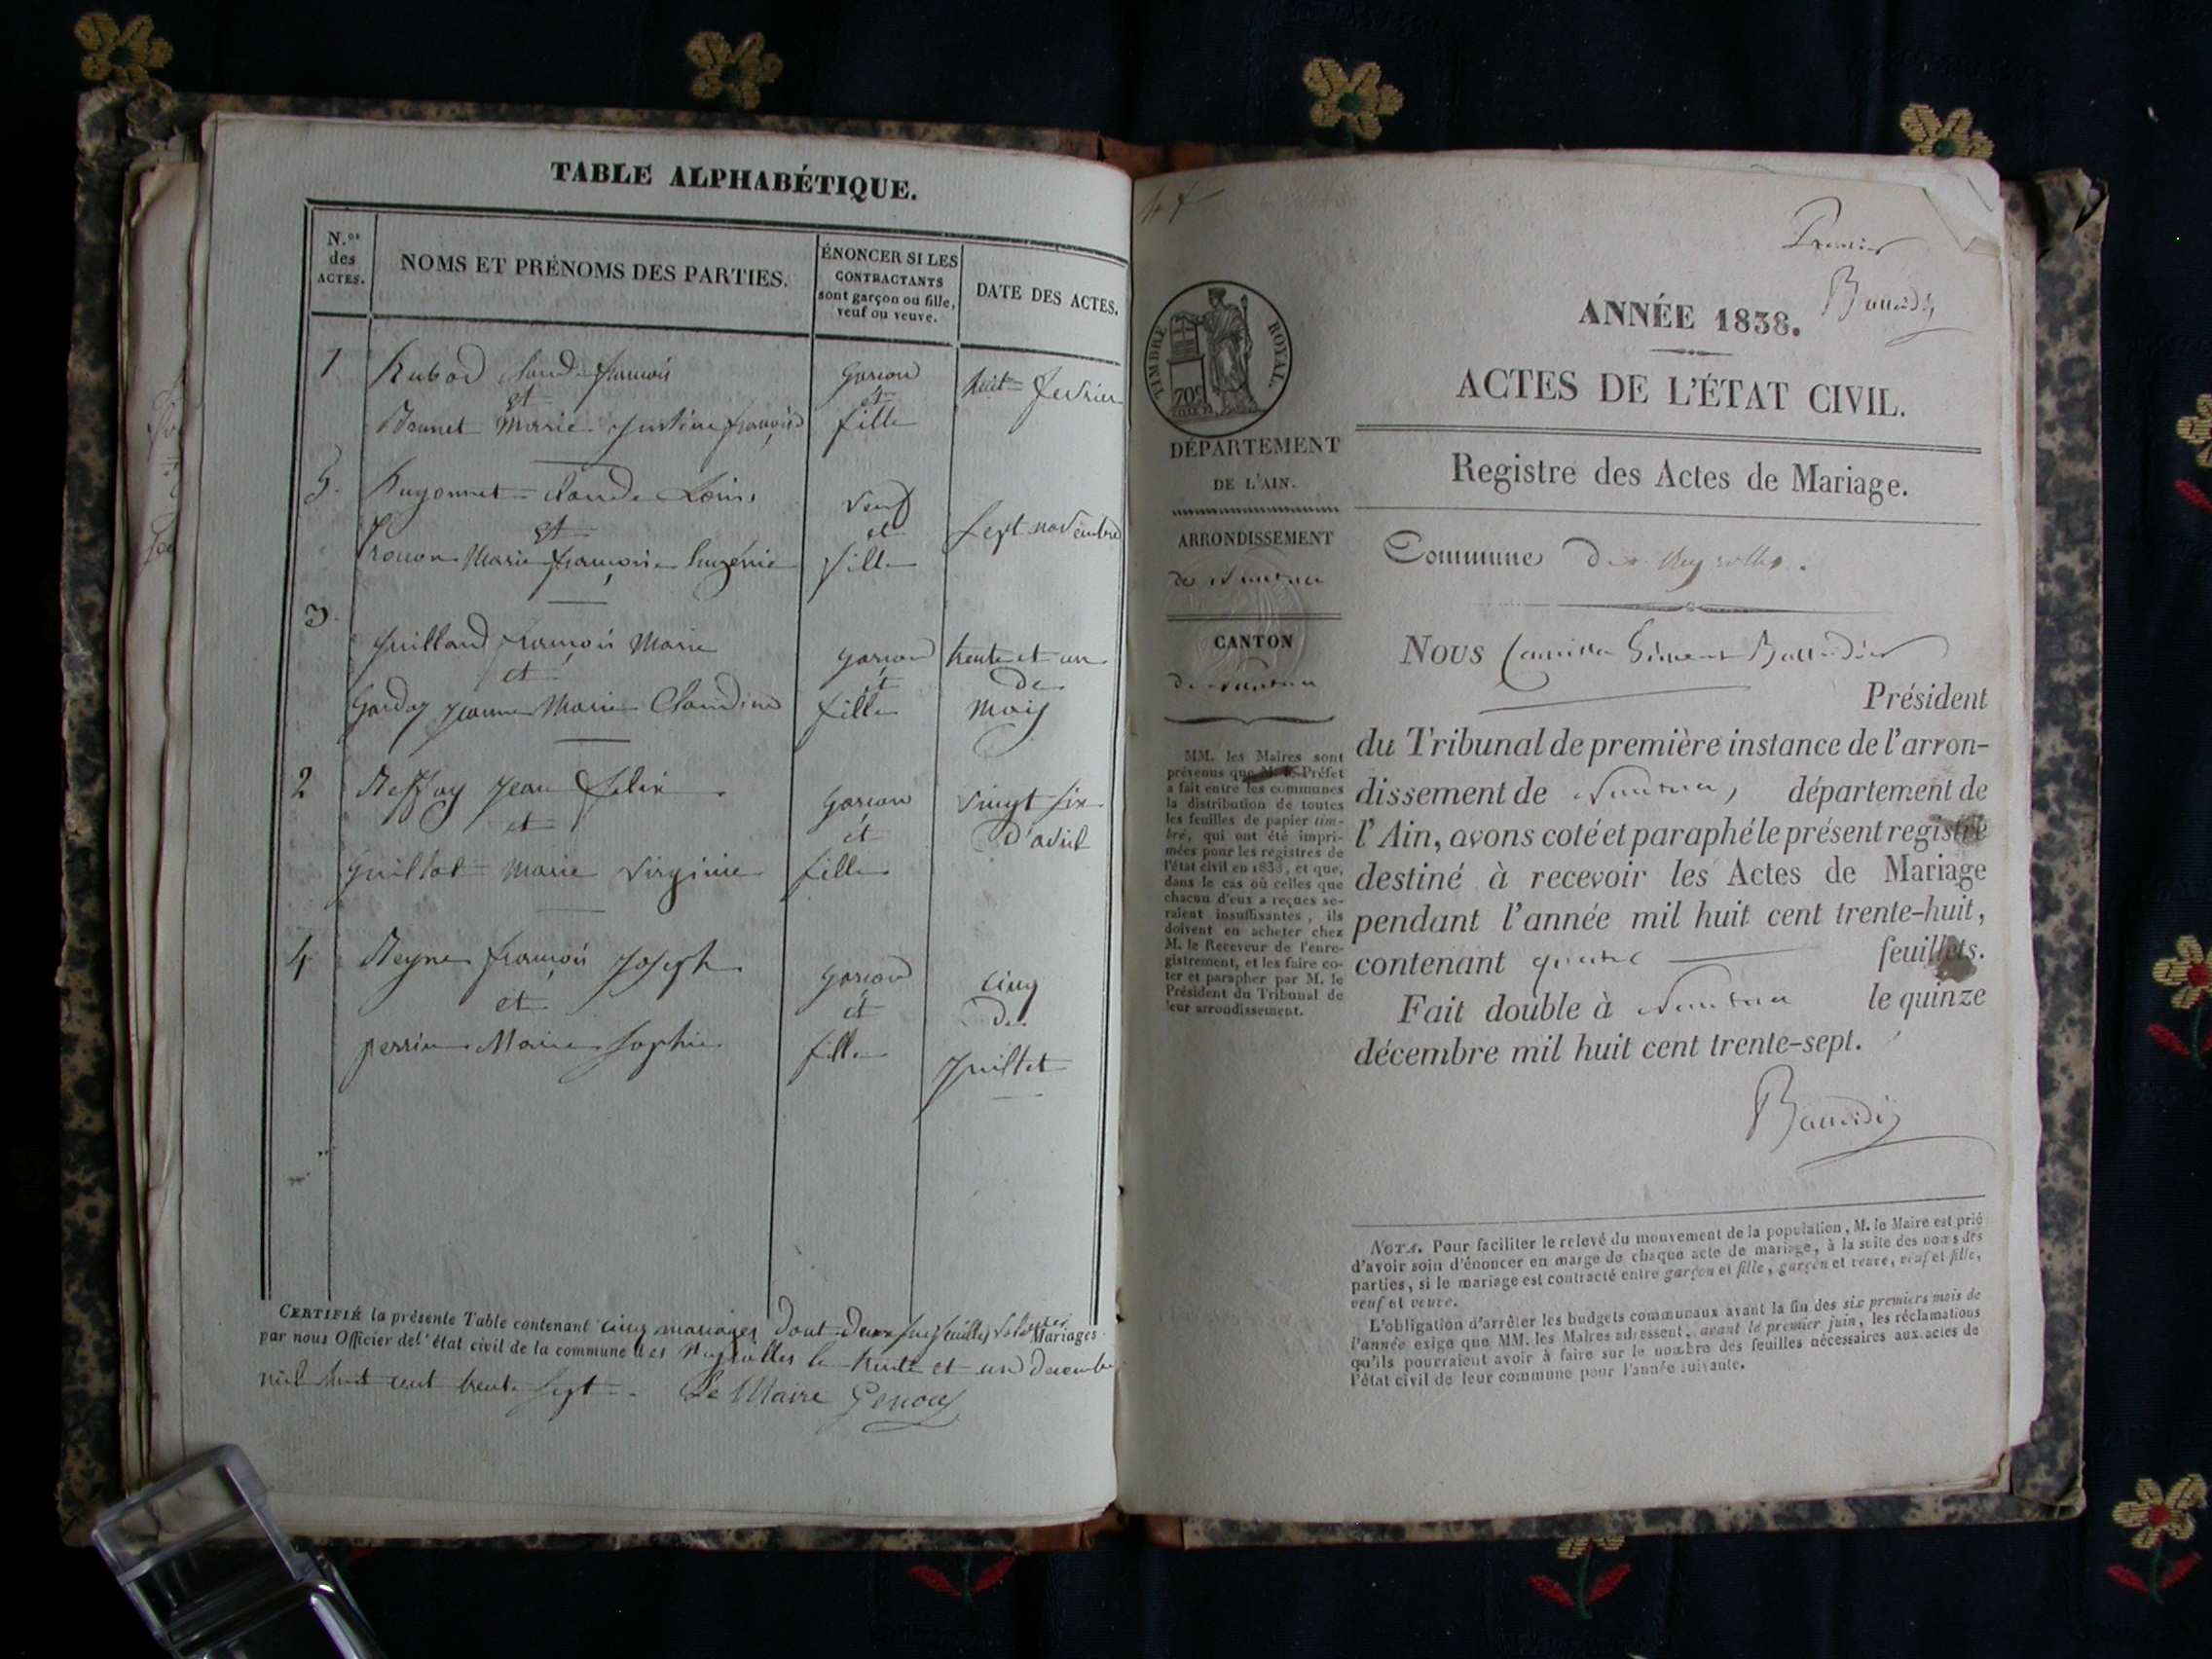 TABLE ALPHABÉTIQUE.
N.os des ACTES.
NOMS ET PRÉNOMS DES PARTIES.
ÉNONCER SI LES CONTRACTANTS sont garçon ou fille, veuf ou veuve.
DATE DES ACTES.
1 françois garçon huit fevrier
et et
Marie françoise fille
5. Claude Louis veuf
et et sept novembre
Marie françoise Eugénie fille
3.
françois Marie garçon trente et un
et et de
Jeanne Marie Claudine fille
2 Jean felix garçon vingt six
et et d'avril
Marie Virginie fille
4 françois Joseph garçon cinq
et et de
perrin Marie Sophie fille
Juillet
CERTIFIÉ la présente Table contenant cinq mariages dont Mariages
par nous Officier de l'état civil de la commune des Neyrolles le trente et un decembre
mil huit cent trente sept. Le Maire
Premier
ANNÉE 1838.
ACTES DE L'ÉTAT CIVIL.
Registre des Actes de Mariage.
TIMBRE ROYAL.
70c
DÉPARTEMENT
DE L'AIN.
ARRONDISSEMENT
de Nantua
CANTON
de Nantua
MM. les Maires sont
prévenus que M. le Préfet
a fait entre les communes
la distribution de toutes
les feuilles de papier tim-
bré, qui ont été impri-
mées pour les registres de
l'état civil en 1838, et que,
dans le cas où celles que
chacun d'eux a reçues se-
raient insuffisantes, ils
doivent en acheter chez
M. le Receveur de l'enre-
gistrement, et les faire co-
ter et parapher par M. le
Président du Tribunal de
leur arrondissement.
Commune des Neyrolles.
Nous
Président
du Tribunal de première instance de l'arron-
dissement de Nantua, département de
l'Ain, avons coté et paraphé le présent registre
destiné à recevoir les Actes de Mariage
pendant l'année mil huit cent trente-huit,
contenant quatre feuillets.
Fait double à Nantua le quinze
décembre mil huit cent trente-sept.
NOTA. Pour faciliter le relevé du mouvement de la population, M. le Maire est prié
d'avoir soin d'énoncer en marge de chaque acte de mariage, à la suite des noms des
parties, si le mariage est contracté entre garçon et fille, garçon et veuve, veuf et fille,
veuf et veuve.
L'obligation d'arrêter les budgets communaux avant la fin des six premiers mois de
l'année exige que MM. les Maires adressent, avant le premier juin, les réclamations
qu'ils pourraient avoir à faire sur le nombre des feuilles nécessaires aux actes de
l'état civil de leur commune pour l'année suivante.